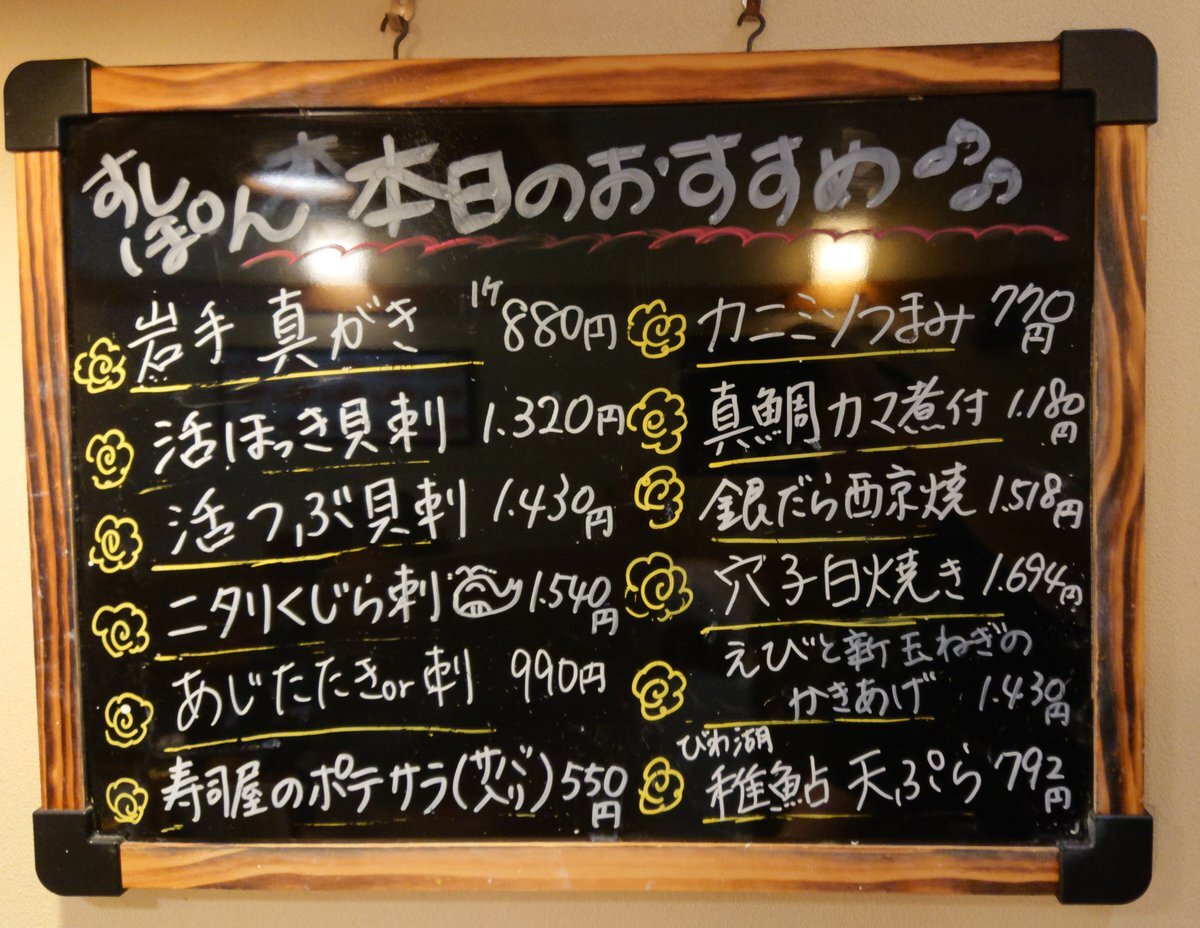 すしぽん 本日のおすすめ♪♫
岩手 真がき 1ケ 880円
活ほっき貝刺 1.320円
活つぶ貝刺 1.430円
ニタリくじら刺 1.540円
あじたたきor刺 990円
寿司屋のポテサラ(サバ入り) 550円
カニミソつまみ 770円
真鯛カマ煮付 1.180円
銀だら西京焼 1.518円
穴子白焼き 1.694円
えびと新玉ねぎの
かきあげ 1.430円
びわ湖
稚鮎 天ぷら 792円